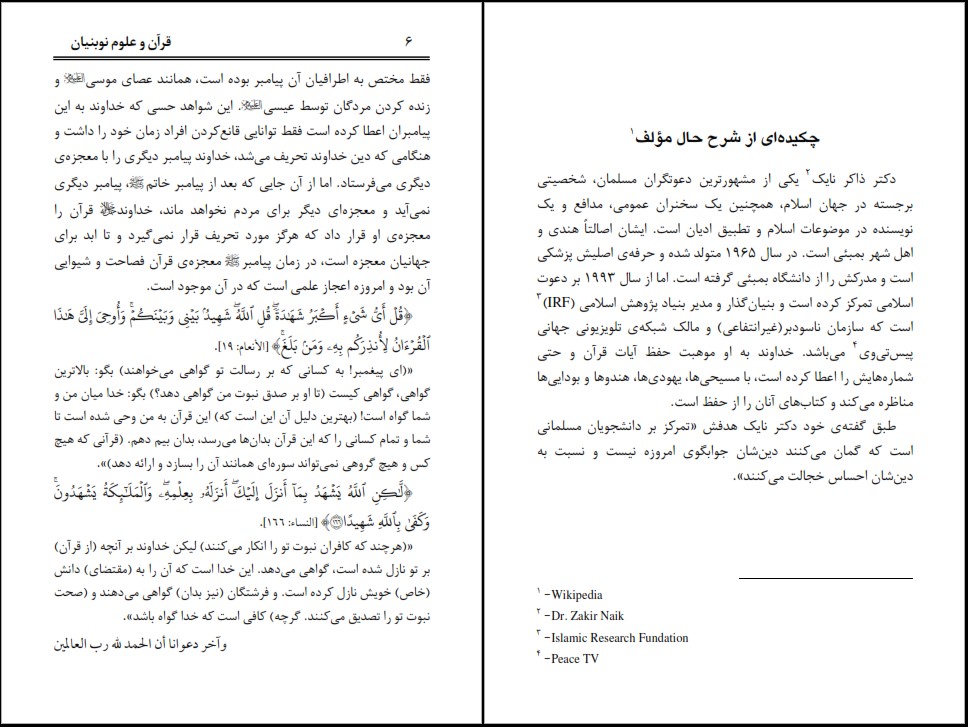 ۶
قرآن و علوم نوبنیان
فقط مختص به اطرافیان آن پیامبر بوده است، همانند عصای موسی؛ و
زنده کردن مردگان توسط عیسی؛. این شواهد حسی که خداوند به این
پیامبران اعطا کرده است فقط توانایی قانع‌کردن افراد زمان خود را داشت و
هنگامی که دین خداوند تحریف می‌شد، خداوند پیامبر دیگری را با معجزه‌ی
دیگری می‌فرستاد. اما از آن جایی که بعد از پیامبر خاتم ﷺ، پیامبر دیگری
نمی‌آید و معجزه‌ای دیگر برای مردم نخواهد ماند، خداوند قرآن را
معجزه‌ی او قرار داد که هرگز مورد تحریف قرار نمی‌گیرد و تا ابد برای
جهانیان معجزه است، در زمان پیامبر ﷺ معجزه‌ی قرآن فصاحت و شیوایی
آن بود و امروزه اعجاز علمی است که در آن موجود است.
﴿قُلْ أَيُّ شَيْءٍ أَكْبَرُ شَهَٰدَةٗۖ قُلِ ٱللَّهُۖ شَهِيدُۢ بَيْنِي وَبَيْنَكُمْۚ وَأُوحِيَ إِلَيَّ هَٰذَا
ٱلْقُرْءَانُ لِأُنذِرَكُم بِهِۦ وَمَنۢ بَلَغَۚ﴾ [الأنعام: ۱۹].
«(ای پیغمبر! به کسانی که بر رسالت تو گواهی می‌خواهند) بگو: بالاترین
گواهی، گواهی کیست (تا او بر صدق نبوت من گواهی دهد؟) بگو: خدا میان من و
شما گواه است! (بهترین دلیل آن این است که) این قرآن به من وحی شده است تا
شما و تمام کسانی را که این قرآن بدان‌ها می‌رسد، بدان بیم دهم. (قرآنی که هیچ
کس و هیچ گروهی نمی‌تواند سوره‌ای همانند آن را بسازد و ارائه دهد)».
﴿لَّٰكِنِ ٱللَّهُ يَشْهَدُ بِمَآ أَنزَلَ إِلَيْكَۖ أَنزَلَهُۥ بِعِلْمِهِۦۖ وَٱلْمَلَٰٓئِكَةُ يَشْهَدُونَۚ
وَكَفَىٰ بِٱللَّهِ شَهِيدًا ۝١٦٦﴾ [النساء: ۱۶۶].
«(هرچند که کافران نبوت تو را انکار می‌کنند) لیکن خداوند بر آنچه (از قرآن)
بر تو نازل شده است، گواهی می‌دهد. این خدا است که آن را به (مقتضای) دانش
(خاص) خویش نازل کرده است. و فرشتگان (نیز بدان) گواهی می‌دهند و (صحت
نبوت تو را تصدیق می‌کنند. گرچه) کافی است که خدا گواه باشد».
وآخر دعوانا أن الحمد لله رب العالمین
چکیده‌ای از شرح حال مؤلف۱
دکتر ذاکر نایک۲ یکی از مشهورترین دعوتگران مسلمان، شخصیتی
برجسته در جهان اسلام، همچنین یک سخنران عمومی، مدافع و یک
نویسنده در موضوعات اسلام و تطبیق ادیان است. ایشان اصالتاً هندی و
اهل شهر بمبئی است. در سال ۱۹۶۵ متولد شده و حرفه‌ی اصلیش پزشکی
است و مدرکش را از دانشگاه بمبئی گرفته است. اما از سال ۱۹۹۳ بر دعوت
اسلامی تمرکز کرده است و بنیان‌گذار و مدیر بنیاد پژوهش اسلامی (IRF)۳
است که سازمان ناسودبر(غیرانتفاعی) و مالک شبکه‌ی تلویزیونی جهانی
پیس‌تی‌وی۴ می‌باشد. خداوند به او موهبت حفظ آیات قرآن و حتی
شماره‌هایش را اعطا کرده است، با مسیحی‌ها، یهودی‌ها، هندوها و بودایی‌ها
مناظره می‌کند و کتاب‌های آنان را از حفظ است.
طبق گفته‌ی خود دکتر نایک هدفش «تمرکز بر دانشجویان مسلمانی
است که گمان می‌کنند دین‌شان جوابگوی امروزه نیست و نسبت به
دین‌شان احساس خجالت می‌کنند».
۱ -Wikipedia
۲ -Dr. Zakir Naik
۳ -Islamic Research Fundation
۴ -Peace TV